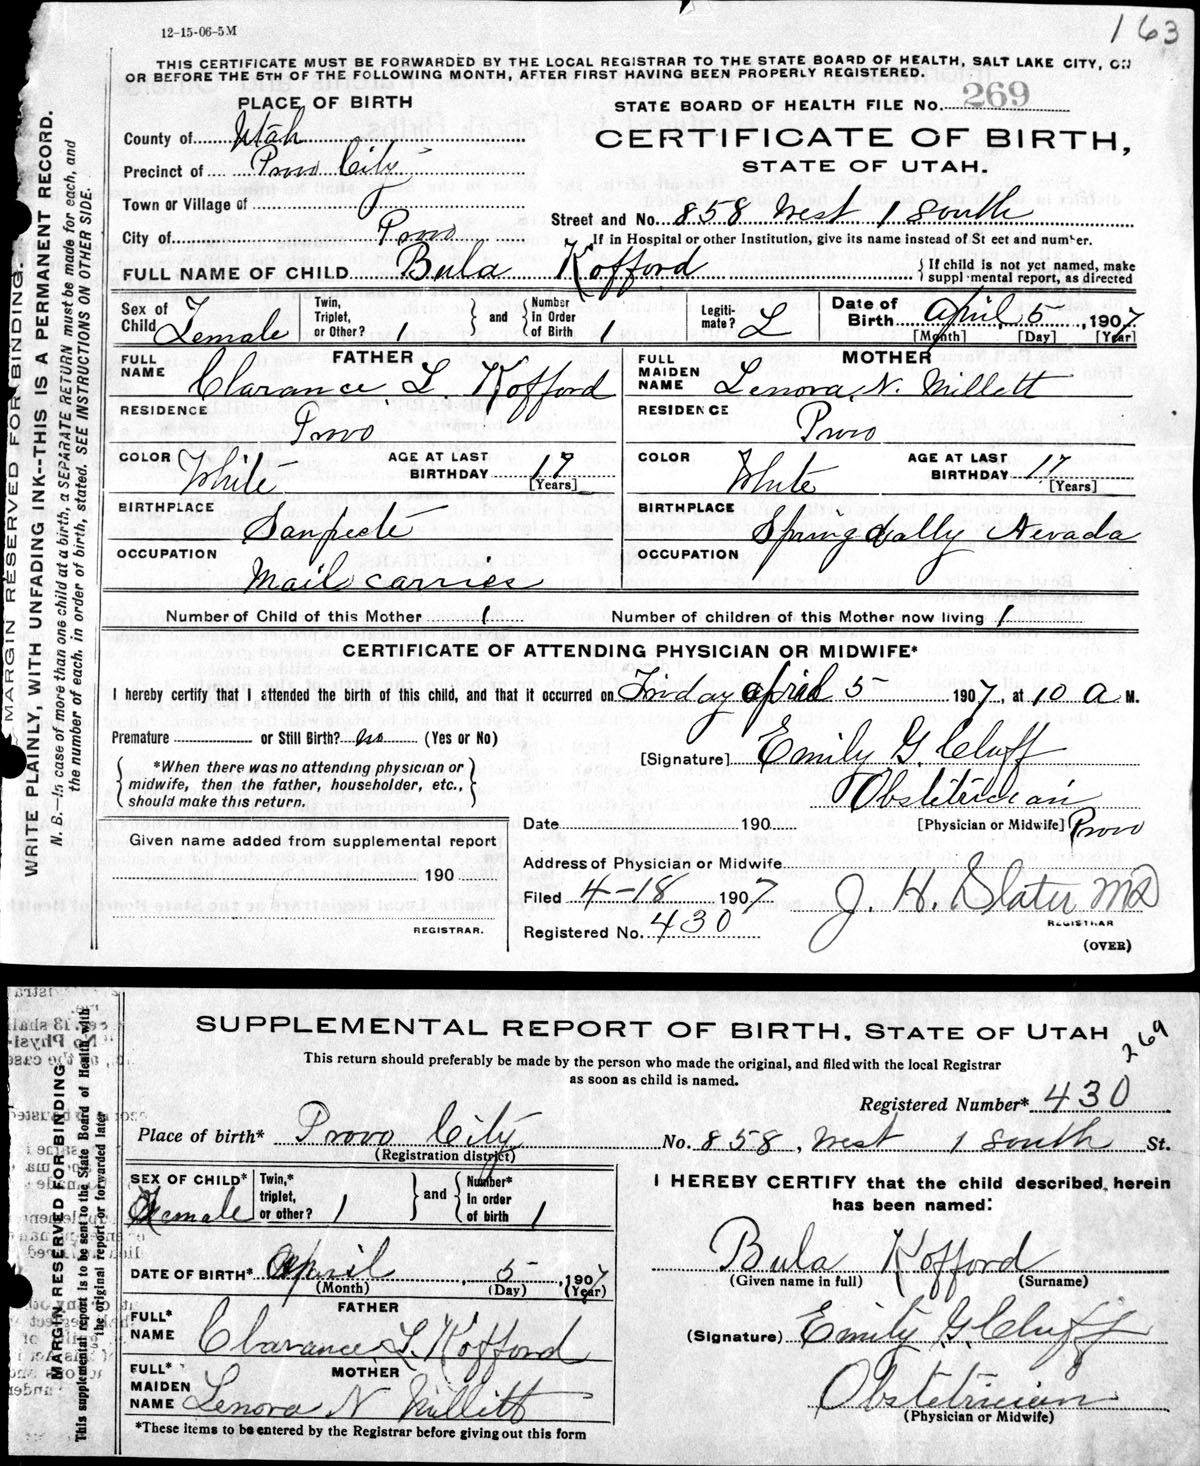 12-15-06-5M
163
THIS CERTIFICATE MUST BE FORWARDED BY THE LOCAL REGISTRAR TO THE STATE BOARD OF HEALTH, SALT LAKE CITY, ON
OR BEFORE THE 5TH OF THE FOLLOWING MONTH, AFTER FIRST HAVING BEEN PROPERLY REGISTERED.
MARGIN RESERVED FOR BINDING.
WRITE PLAINLY, WITH UNFADING INK--THIS IS A PERMANENT RECORD.
N. B.—In case of more than one child at a birth, a SEPARATE RETURN must be made for each, and
the number of each, in order of birth, stated. SEE INSTRUCTIONS ON OTHER SIDE.
PLACE OF BIRTH
County of Utah
Precinct of Provo City
Town or Village of
City of Provo
STATE BOARD OF HEALTH FILE No. 269
CERTIFICATE OF BIRTH,
STATE OF UTAH.
Street and No. 858 West 1 South
If in Hospital or other Institution, give its name instead of St eet and number.
FULL NAME OF CHILD Bula Kofford { If child is not yet named, make
suppl mental report, as directed
Sex of Child Female Twin, Triplet, or Other? 1 } and { Number In Order of Birth 1 Legiti-mate? L Date of Birth April 5, 1907
[Month] [Day] [Year]
FATHER
FULL NAME Clarance L. Kofford
RESIDENCE
Provo
COLOR White AGE AT LAST BIRTHDAY 19
[Years]
BIRTHPLACE
Sanpete
OCCUPATION
Mail carrier
MOTHER
FULL MAIDEN NAME Lenora N. Millett
RESIDENCE
Provo
COLOR White AGE AT LAST BIRTHDAY 17
[Years]
BIRTHPLACE
Spring vally Nevada
OCCUPATION
Number of Child of this Mother 1 Number of children of this Mother now living 1
CERTIFICATE OF ATTENDING PHYSICIAN OR MIDWIFE*
I hereby certify that I attended the birth of this child, and that it occurred on Friday april 5 1907, at 10 a M.
Premature or Still Birth? no (Yes or No)
{ *When there was no attending physician or
midwife, then the father, householder, etc.,
should make this return. }
[Signature] Emily G. Cluff
Obstetrician
[Physician or Midwife] Provo
Date 190
Address of Physician or Midwife
Given name added from supplemental report
190
REGISTRAR.
Filed 4-18 1907 J. H. Slater MD
REGISTRAR
Registered No. 430
(OVER)
SUPPLEMENTAL REPORT OF BIRTH, STATE OF UTAH
269
This return should preferably be made by the person who made the original, and filed with the local Registrar
as soon as child is named.
MARGIN RESERVED FOR BINDING
This supplemental report is to be sent to the State Board of Health with
the original report or forwarded later
Registered Number* 430
Place of birth* Provo City No. 858, West 1 South St.
(Registration district)
SEX OF CHILD* Female Twin,* triplet, or other? 1 } and { Number* In order of birth 1
DATE OF BIRTH* April, 5, 1907
(Month) (Day) (Year)
FATHER
FULL* NAME Clarance L. Kofford
MOTHER
FULL* MAIDEN NAME Lenora N Millett
*These items to be entered by the Registrar before giving out this form
I HEREBY CERTIFY that the child described herein
has been named:
Bula Kofford
(Given name in full) (Surname)
(Signature) Emily G. Cluff
Obstetrician
(Physician or Midwife)